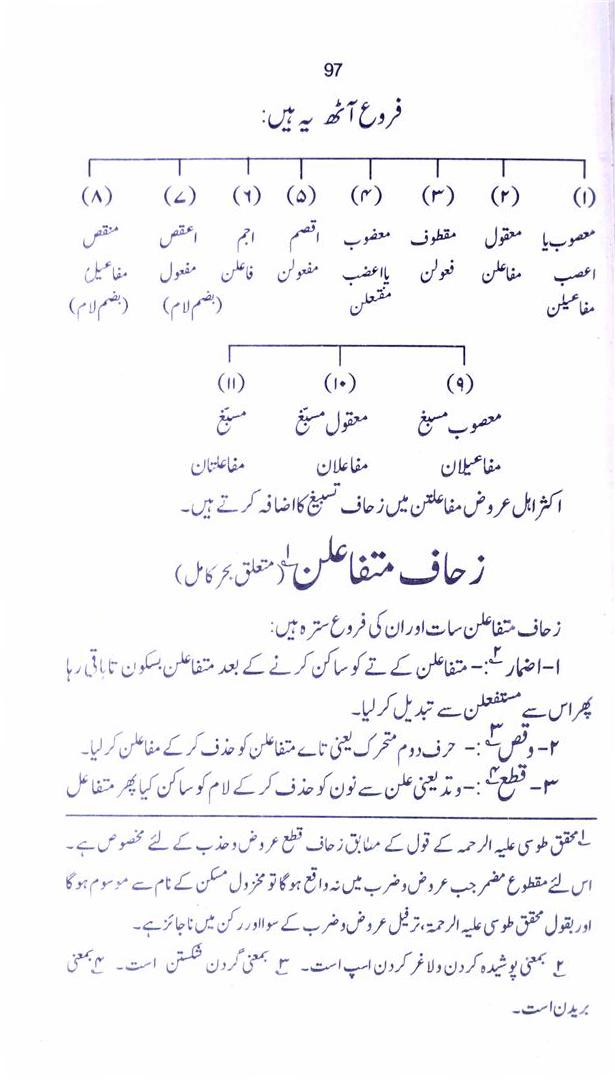 97
فروع آٹھ یہ ہیں:
(۱) (۲) (۳) (۴) (۵) (۶) (۷) (۸)
معصوب یا معقول مقطوف معضوب اقصم اجم اعقص منقص
اعصب مفاعلن فعولن یا اعضب مفعولن فاعلن مفعول مفاعیل
مفاعیلن مفتعلن (بضم لام) (بضم لام)
(۹) (۱۰) (۱۱)
معصوب مسبغ معقول مسبّغ مسبّغ
مفاعیلان مفاعلان مفاعلتان
اکثر اہل عروض مفاعلتن میں زحاف تسبیغ کا اضافہ کرتے ہیں۔
زحاف متفاعلن ۱؎ (متعلق بحر کامل)
زحاف متفاعلن سات اور ان کی فروع سترہ ہیں:
۱- اضمار ۲؎ :- متفاعلن کے تے کو ساکن کرنے کے بعد متفاعلن بسکون تا باقی رہا
پھر اس سے مستفعلن سے تبدیل کر لیا۔
۲- وقص ۳؎ :- حرف دوم متحرک یعنی تاے متفاعلن کو حذف کر کے مفاعلن کر لیا۔
۳- قطع ۴؎ :- وتد یعنی علن سے نون کو حذف کر کے لام کو ساکن کیا پھر متفاعل
۱؎ محقق طوسی علیہ الرحمہ کے قول کے مطابق زحاف قطع عروض و حذب کے لئے مخصوص ہے۔
اس لئے مقطوع مضمر جب عروض و ضرب میں نہ واقع ہو گا تو مخزول مسکن کے نام سے موسوم ہو گا
اور بقول محقق طوسی علیہ الرحمۃ، ترفیل عروض و ضرب کے سوا اور رکن میں ناجائز ہے۔
۲؎ بمعنی پوشیدہ کردن و لاغر کردن اسپ است۔ ۳؎ بمعنی گردن شکستن است۔ ۴؎ بمعنی
بریدن است۔